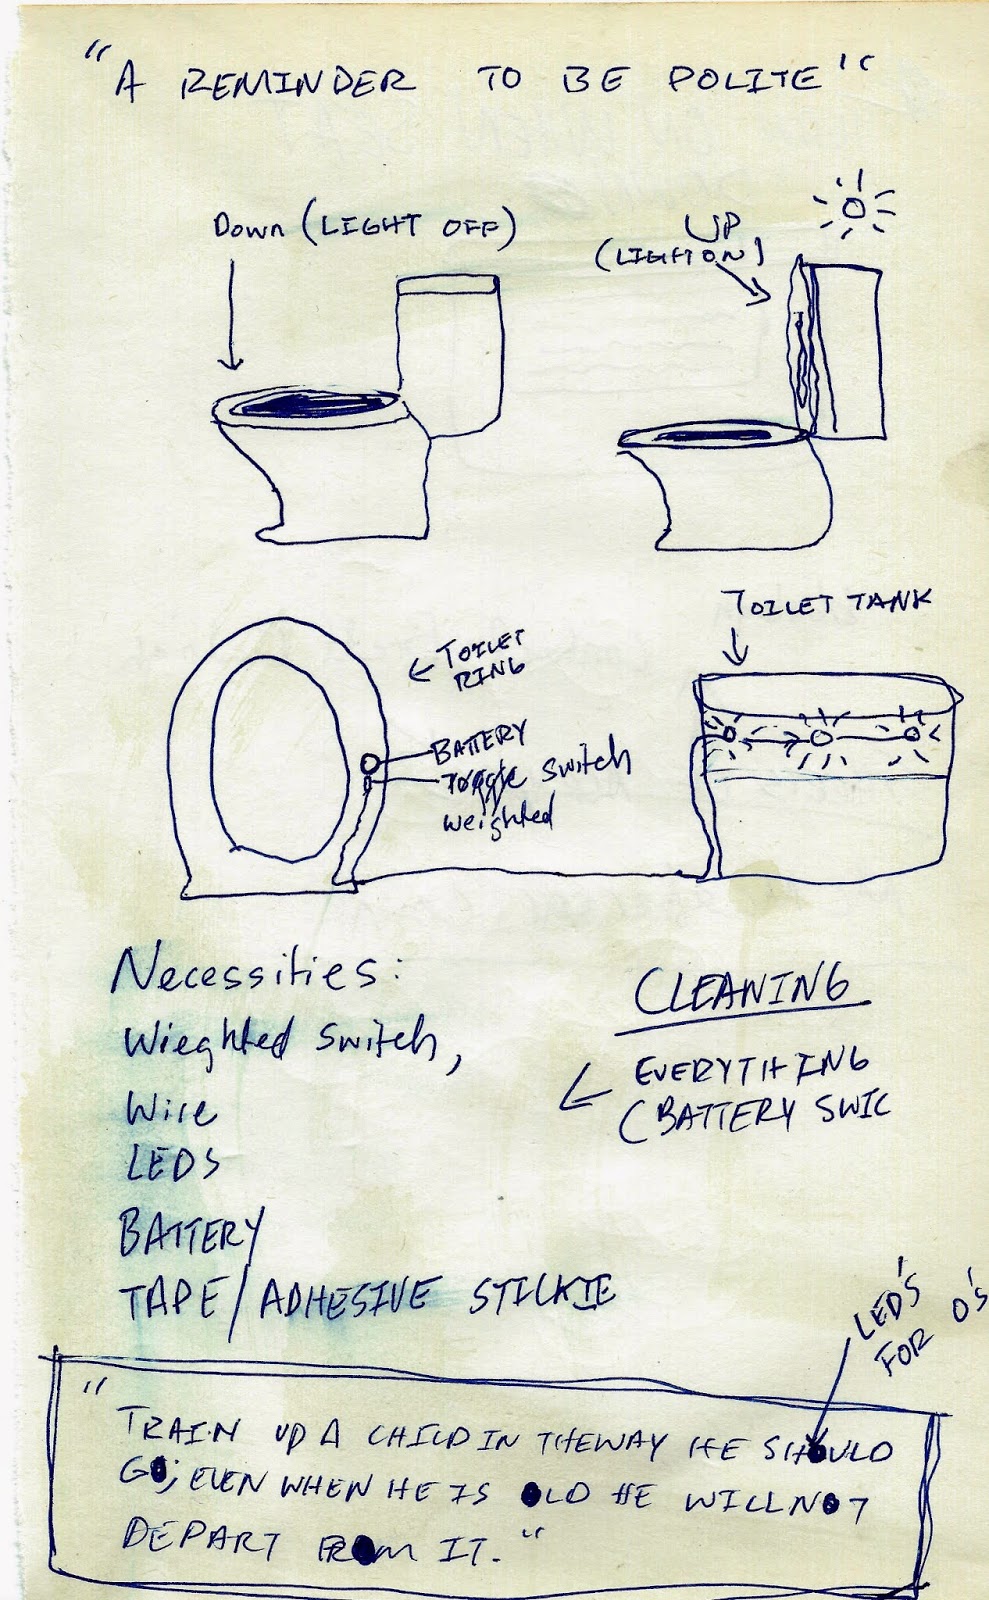 "A REMINDER TO BE POLITE"
Down (LIGHT OFF)
UP
(LIGHT ON)
TOILET TANK
TOILET
RING
BATTERY
Toggle switch
weighted
Necessities:
Wieghted switch,
Wire
LEDS
BATTERY
TAPE/ADHESIVE STICKIE
CLEANING
EVERYTHING
(BATTERY SWIC
LED'S
FOR O'S
"TRAIN UP A CHILD IN THE WAY HE SHOULD
GO; EVEN WHEN HE IS OLD HE WILL NOT
DEPART FROM IT."